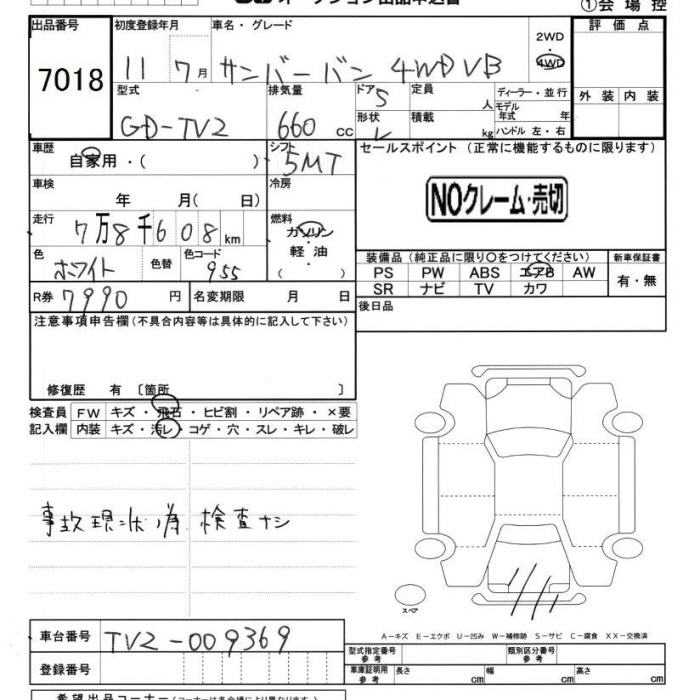 オークション出品申込書
①会場控
出品番号 初度登録年月 車名・グレード 評価点
7018 11 7月 サンバーバン 4WD VB 2WD・4WD
型式 排気量 ドア 定員 ディーラー・並行 外装 内装
GD-TV2 660 cc 5 人 モデル年式 年
形状 V 積載 kg ハンドル 左・右
車歴 自家用・( ) シフト 5MT セールスポイント (正常に機能するものに限ります)
車検 年 月( 日) 冷房
NOクレーム・売切
走行 7万8千608km 燃料 ガソリン・軽油・( )
色 ホワイト 色替 色コード 955
装備品(純正品に限り○をつけてください) 新車保証書
PS PW ABS エアB AW 有・無
SR ナビ TV カワ
R券 7990円 名変期限 月 日
後日品
注意事項申告欄(不具合内容等は具体的に記入して下さい)
修復歴 有 〔箇所 〕
検査員 FW キズ・飛石・ヒビ割・リペア跡・×要
記入欄 内装 キズ・汚レ・コゲ・穴・スレ・キレ・破レ
事故現状の為 検査ナシ
スペア
A-キズ E-エクボ U-凹み W-補修跡 S-サビ C-腐食 XX-交換済
車台番号 TV2-009369
型式指定番号 参考 類別区分番号 参考
登録番号
車庫証明用 参考 長さ cm 幅 cm 高さ cm
希望出品コーナー(コーナーは各会場により異なります)